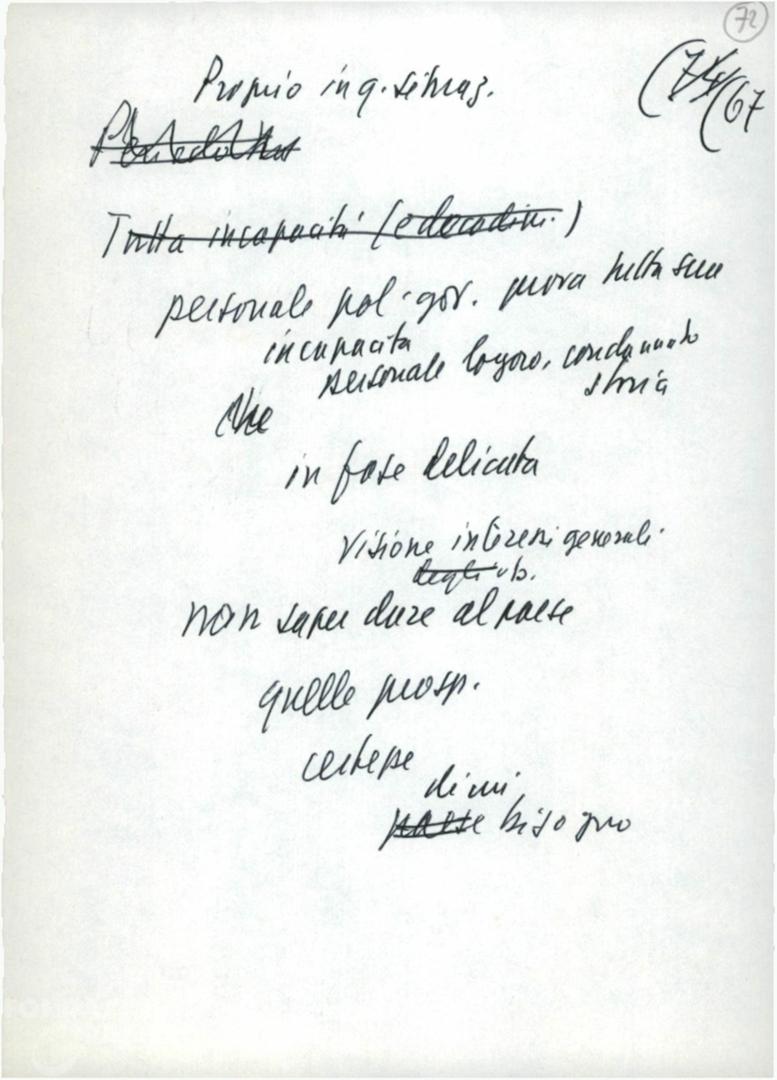 72
(74 (67
Proprio in q. situaz.
Tutta incapacità (e decadim.)
personale pol-gov. prova tutta sua
incapacità
personale logoro, condannato
storia
che
in fase delicata
visione interessi generali
degli ub.
non saper dare al paese
quelle prosp.
certezze
di cui
paese bisogno